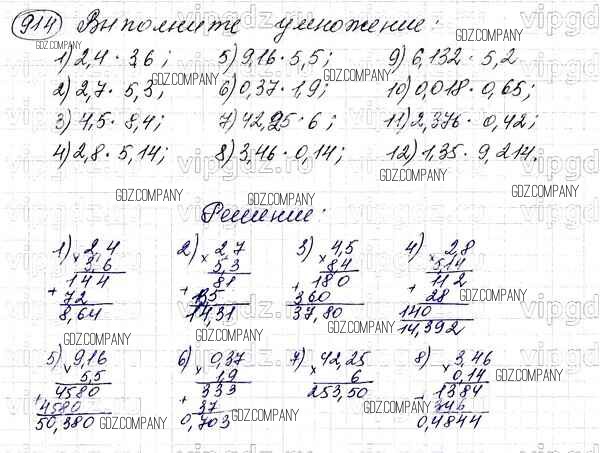 914 Выполните умножение:
1) 2,4 · 3,6; 5) 9,16 · 5,5; 9) 6,132 · 5,2
2) 2,7 · 5,3; 6) 0,37 · 1,9; 10) 0,018 · 0,65;
3) 4,5 · 8,4; 7) 42,25 · 6; 11) 2,376 · 0,42;
4) 2,8 · 5,14; 8) 3,46 · 0,14; 12) 1,35 · 9,214.
Решение:
1) 2,4 2) 2,7 3) 4,5 4) 2,8
× 3,6 × 5,3 × 8,4 × 5,14
144 81 180 112
+ 72 + 135 + 360 + 28
8,64 14,31 37,80 140
14,392
5) 9,16 6) 0,37 7) 42,25 8) 3,46
× 5,5 × 1,9 × 6 × 0,14
4580 333 253,50 1384
+ 4580 + 37 + 346
50,380 0,703 0,4844
GDZ.COMPANY
vipgdz.ru